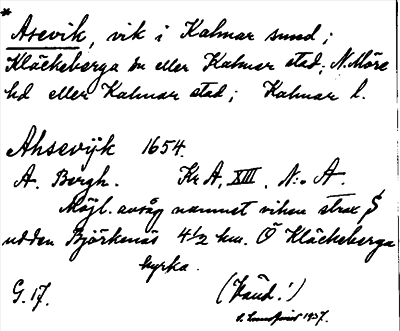 *
Asevik, vik i Kalmar sund;
Kläckeberga sn eller Kalmar stad; N. Möre
hd eller Kalmar stad; Kalmar l.
Ahsevijk 1654.
A. Bergh. Kr A, XIII, N:o A.
Möjl. avsåg namnet viken strax S
udden Björkenäs 4½ km. Ö Kläckeberga
kyrka.
G. 17. (Känd!)
1937.